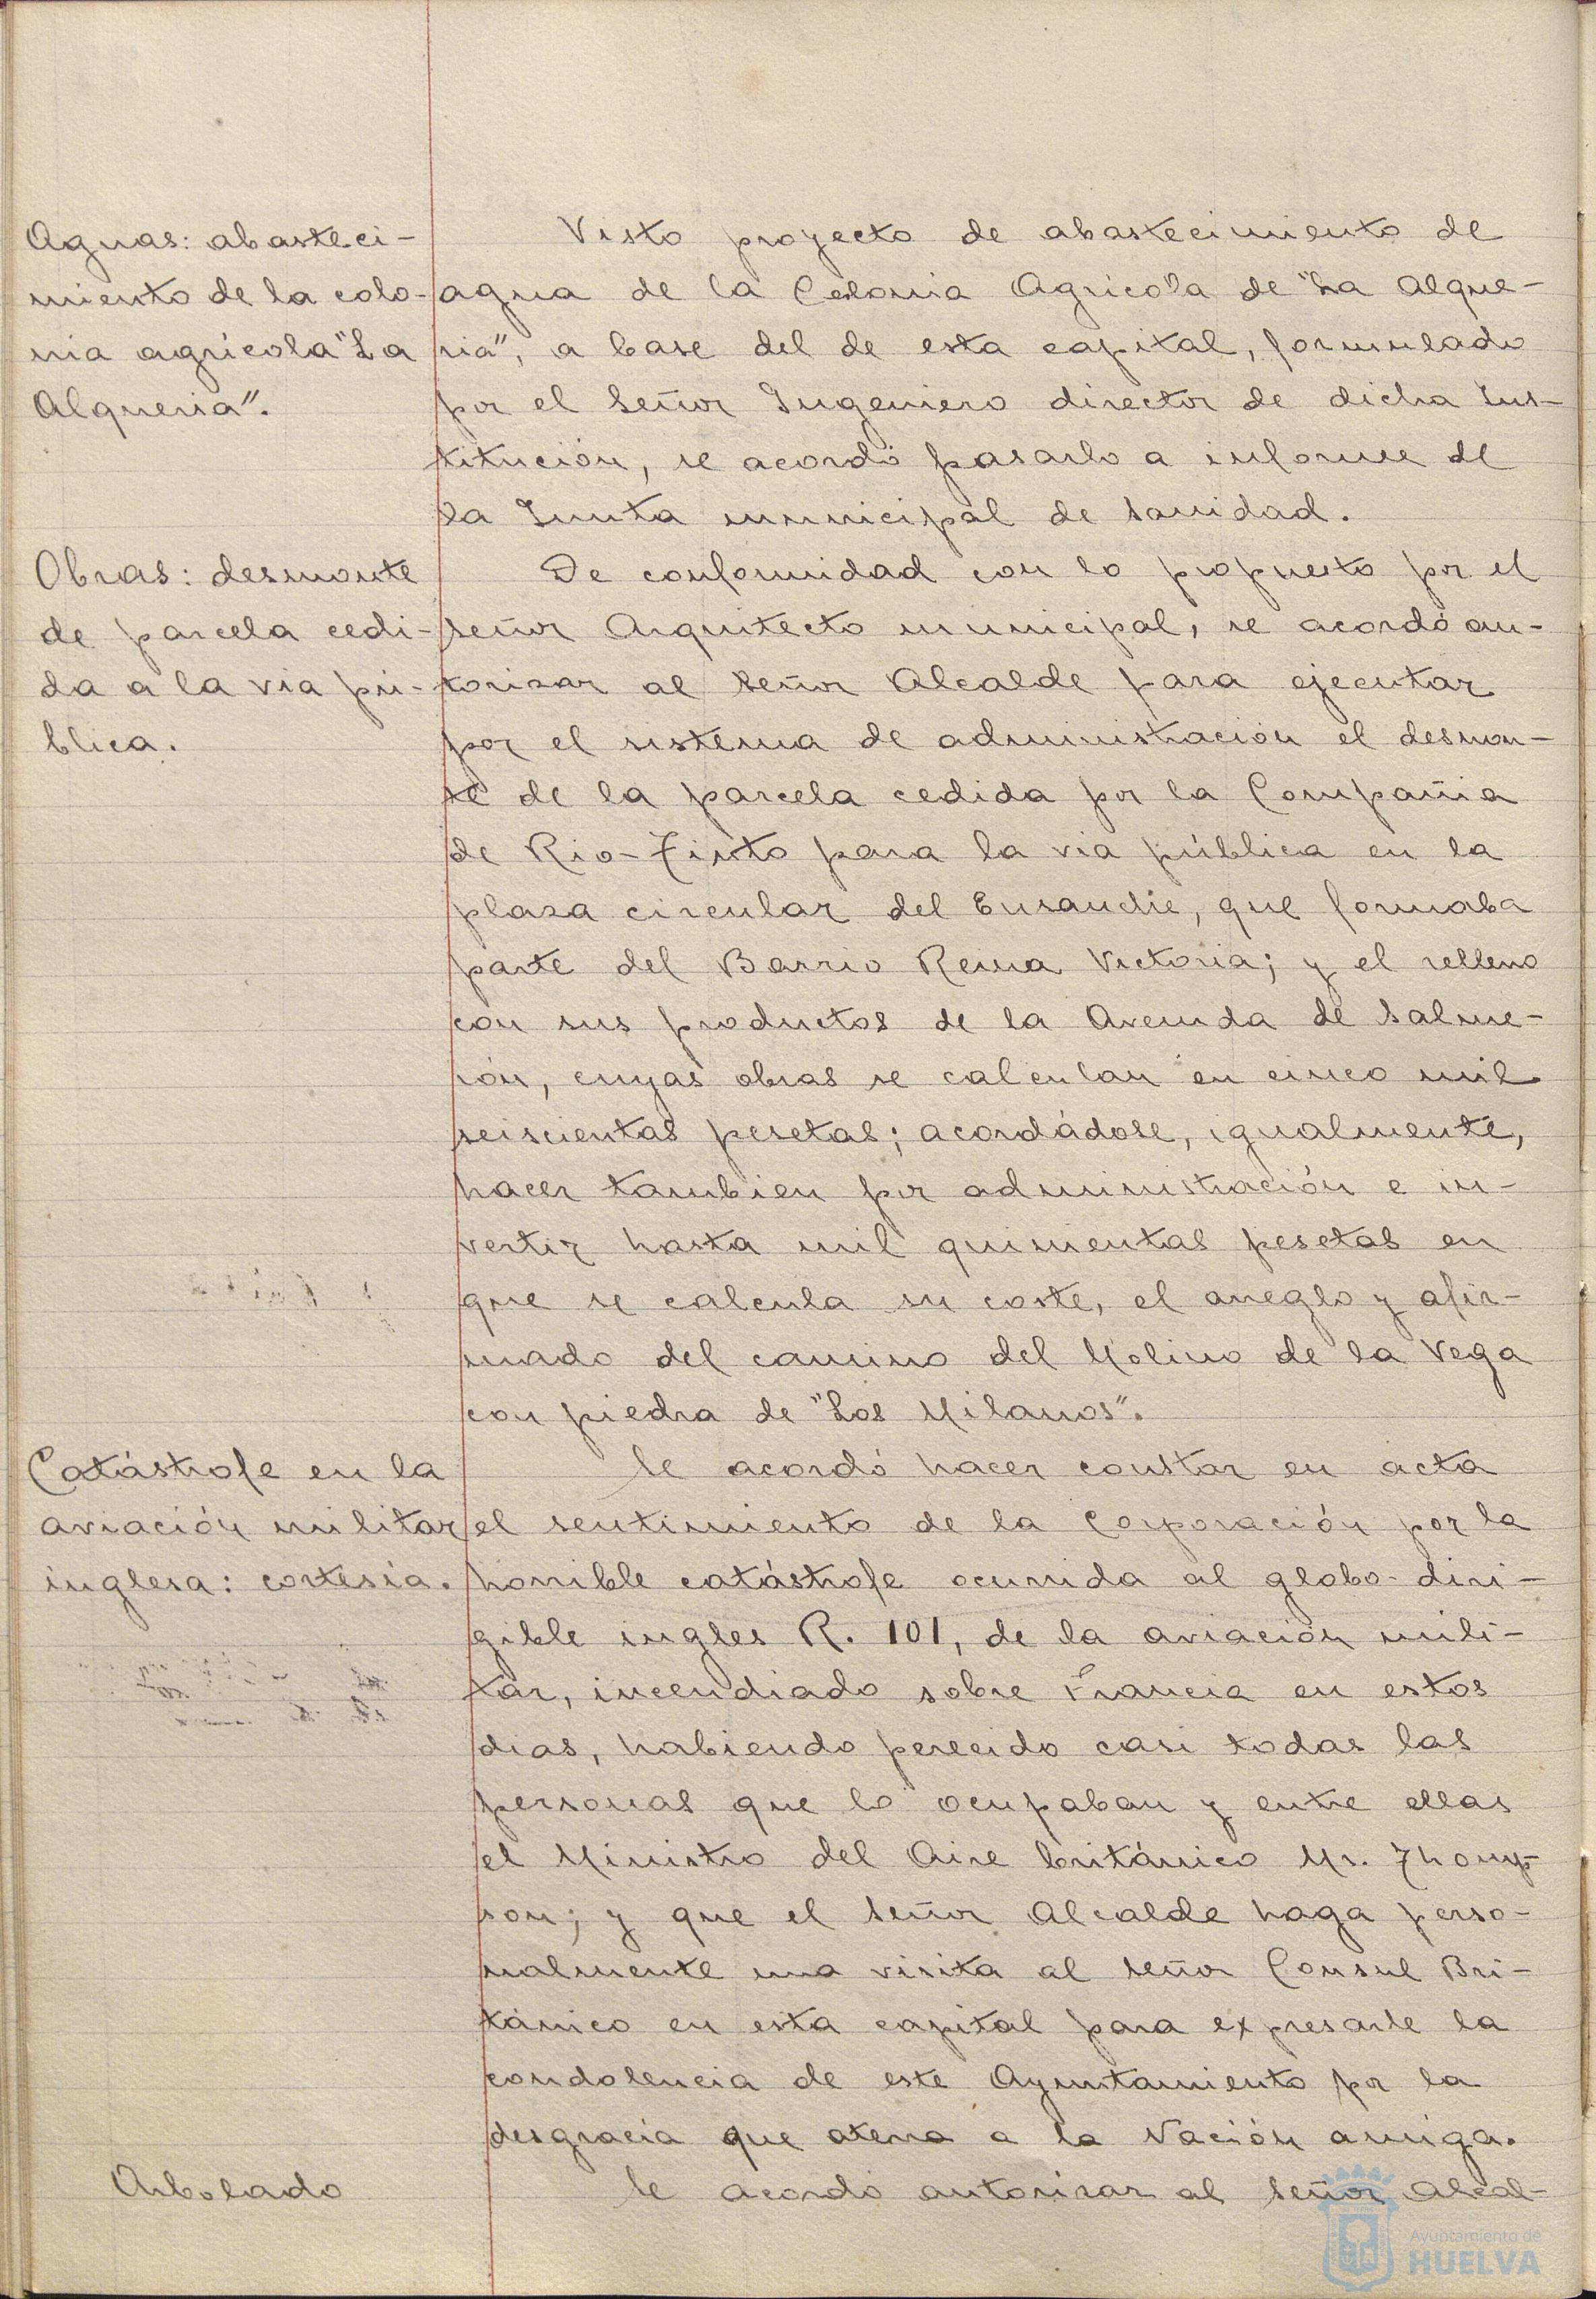 Aguas: abasteci-
miento de la colo-
nia agrícola "La
Alqueria".
Visto proyecto de abastecimiento de
agua de la Colonia Agricola de "La Alque-
ria", a base del de esta capital, formulado
por el Señor Ingeniero director de dicha Ins-
titución, se acordó pasarlo a informe de
la Junta municipal de Sanidad.
Obras: desmonte
de parcela cedi-
da a la via pú-
blica.
De conformidad con lo propuesto por el
señor Arquitecto municipal, se acordó au-
torizar al Señor Alcalde para ejecutar
por el sistema de administración el desmon-
te de la parcela cedida por la Compañia
de Rio-Tinto para la via pública en la
plaza circular del Ensanche, que formaba
parte del Barrio Reina Victoria; y el relleno
con sus productos de la Avenida de Salme-
rón, cuyas obras se calculan en cinco mil
seiscientas pesetas; acordádose, igualmente,
hacer tambien por administración e in-
vertir hasta mil quinientas pesetas en
que se calcula su coste, el arreglo y afir-
mado del camino del Molino de la Vega
con piedra de "Los Milanos".
Catástrofe en la
aviación militar
inglesa: cortesia.
Se acordó hacer constar en acta
el sentimiento de la Corporación por la
horrible catástrofe ocurrida al globo-diri-
gible ingles R. 101, de la aviación mili-
tar, incendiado sobre Francia en estos
dias, habiendo perecido casi todas las
personas que lo ocupaban y entre ellas
el Ministro del Aire británico Mr. Thomp-
son; y que el Señor Alcalde haga perso-
nalmente una visita al Señor Consul Bri-
tánico en esta capital para expresarle la
condolencia de este Ayuntamiento por la
desgracia que aterra a la Nación amiga.
Arbolado
Se acordó autorizar al Señor Alcal-
Ayuntamiento de
HUELVA